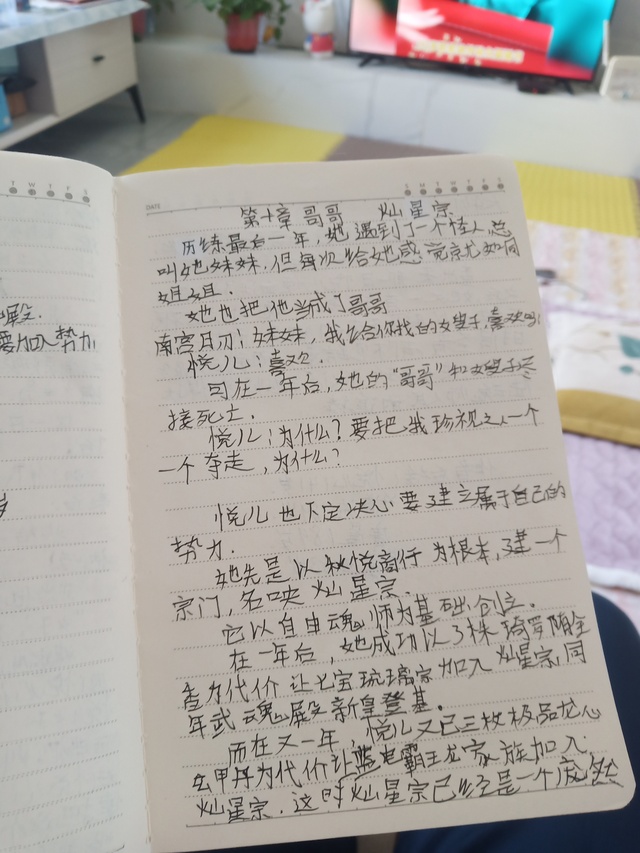 DATE
第十章 哥哥 灿星宗
历练最后一年,她遇到了一个怪人,总
叫她妹妹,但每次给她感觉亲如同
姐姐.
她也把他当成了哥哥
南宫月刃:妹妹,我给你找的女嫂子,喜欢吗?
悦儿:喜欢.
可在一年后,她的"哥哥"和女嫂子
接死亡.
悦儿:为什么?要把我珍视之人一个
一个夺走,为什么?
悦儿也下定决心要建立属于自己的
势力.
她先是以秋悦商行为根本,建一个
宗门,名唤灿星宗.
它以自由魂师为基础创立.
在一年后,她成功以3株绮罗郁金
香为代价让七宝琉璃宗加入灿星宗,同
年武魂殿新皇登基.
而在又一年,悦儿又已三枚极品龙心
玄甲丹为代价让蓝电霸王龙家族加入
灿星宗.这时灿星宗已经是一个庞然
殿.
要加入势力